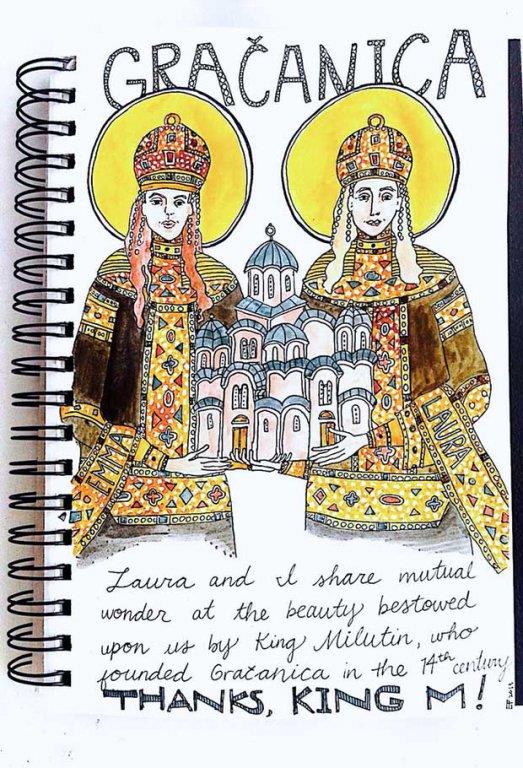 GRAČANICA
EMMA
LAURA
Laura and I share mutual
wonder at the beauty bestowed
upon us by King Milutin, who
founded Gračanica in the 14th century
THANKS, KING M!